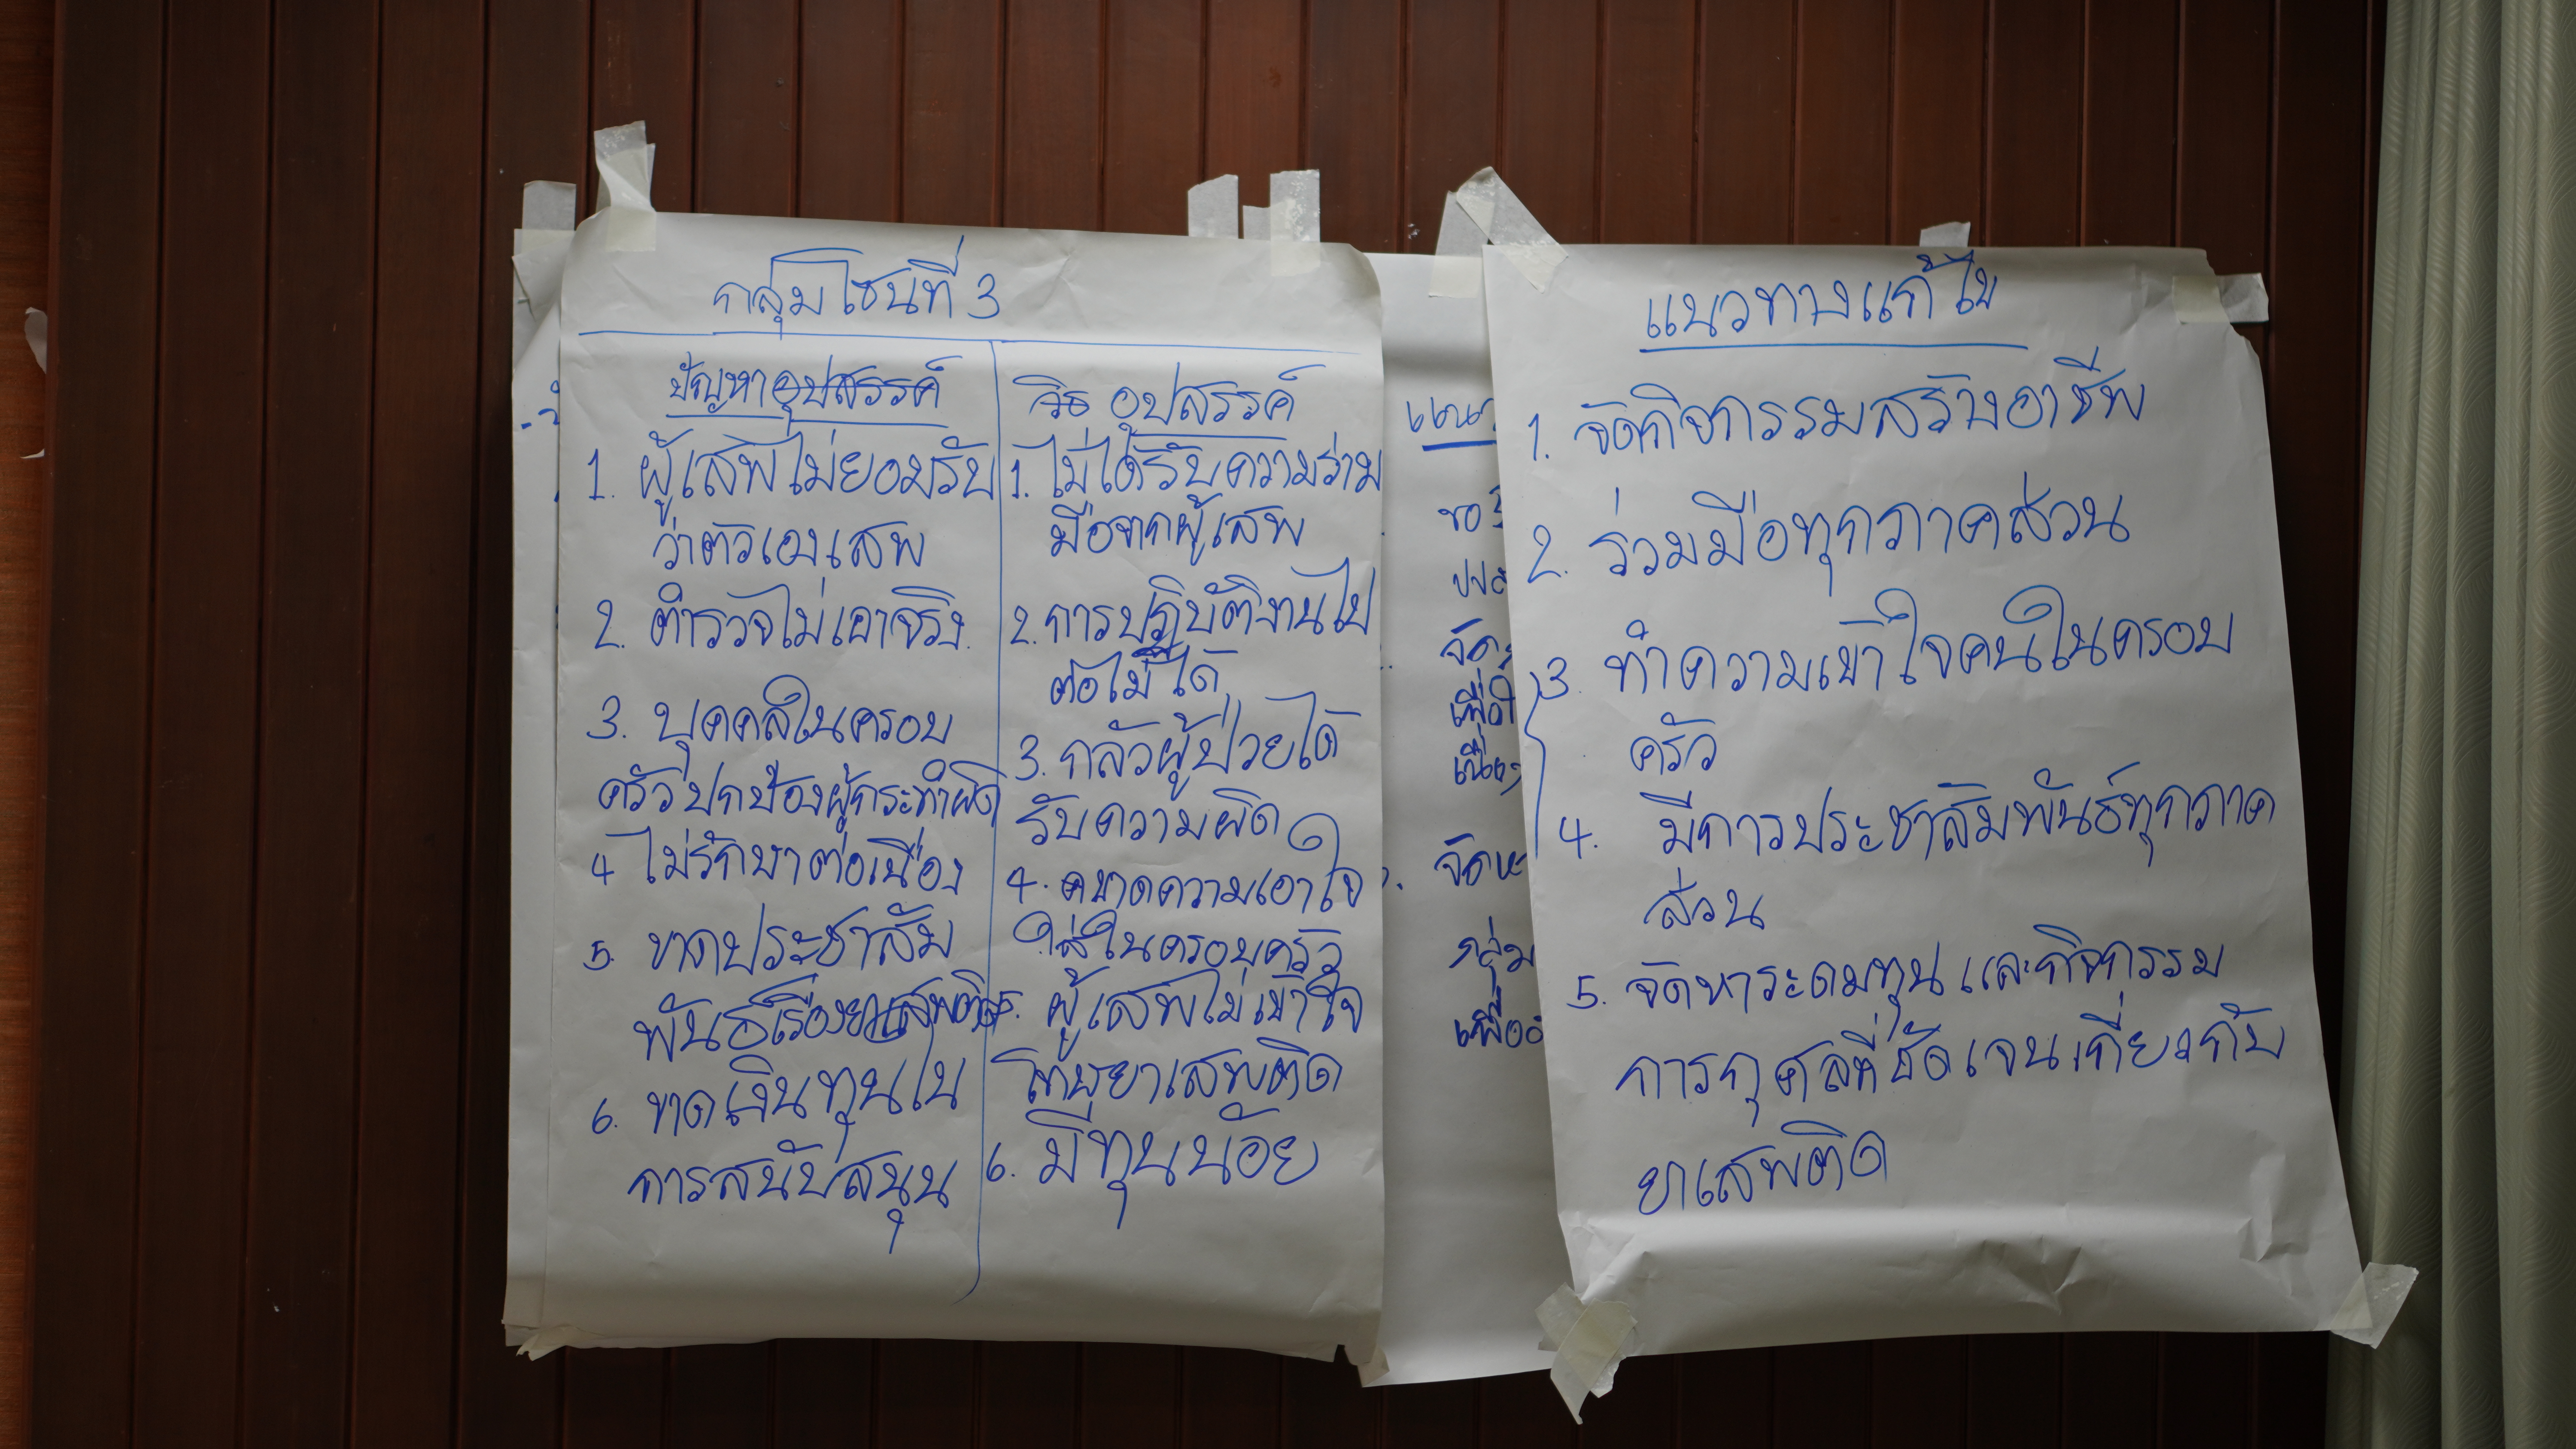 กลุ่มโซนที่ 3
ปัญหาอุปสรรค์
1. ผู้เสพไม่ยอมรับ
ว่าตัวเองเสพ
2. ตำรวจไม่เอาจริง
3. บุคคลในครอบ
ครัวปกป้องผู้กระทำผิด
4 ไม่รักษาต่อเนื่อง
5. ขาดประชาสัม
พันธ์เรื่องยาเสพติด
6. ขาดเงินทุนใน
การสนับสนุน
อุปสรรค์
1. ไม่ได้รับความร่วม
มือจากผู้เสพ
2. การปฏิบัติงานไป
ต่อไม่ได้
3. กลัวผู้ป่วยได้
รับความผิด
4. ขาดความเอาใจ
ใส่ในครอบครัว
5. ผู้เสพไม่เข้าใจ
โทษยาเสพติด
6. มีทุนน้อย
แนวทางแก้ไข
1. จัดกิจกรรมสร้างอาชีพ
2. ร่วมมือทุกภาคส่วน
3. ทำความเข้าใจคนในครอบ
ครัว
4. มีการประชาสัมพันธ์ทุกภาค
ส่วน
5. จัดหาระดมทุน และกิจกรรม
การกุศลที่ชัดเจนเกี่ยวกับ
ยาเสพติด